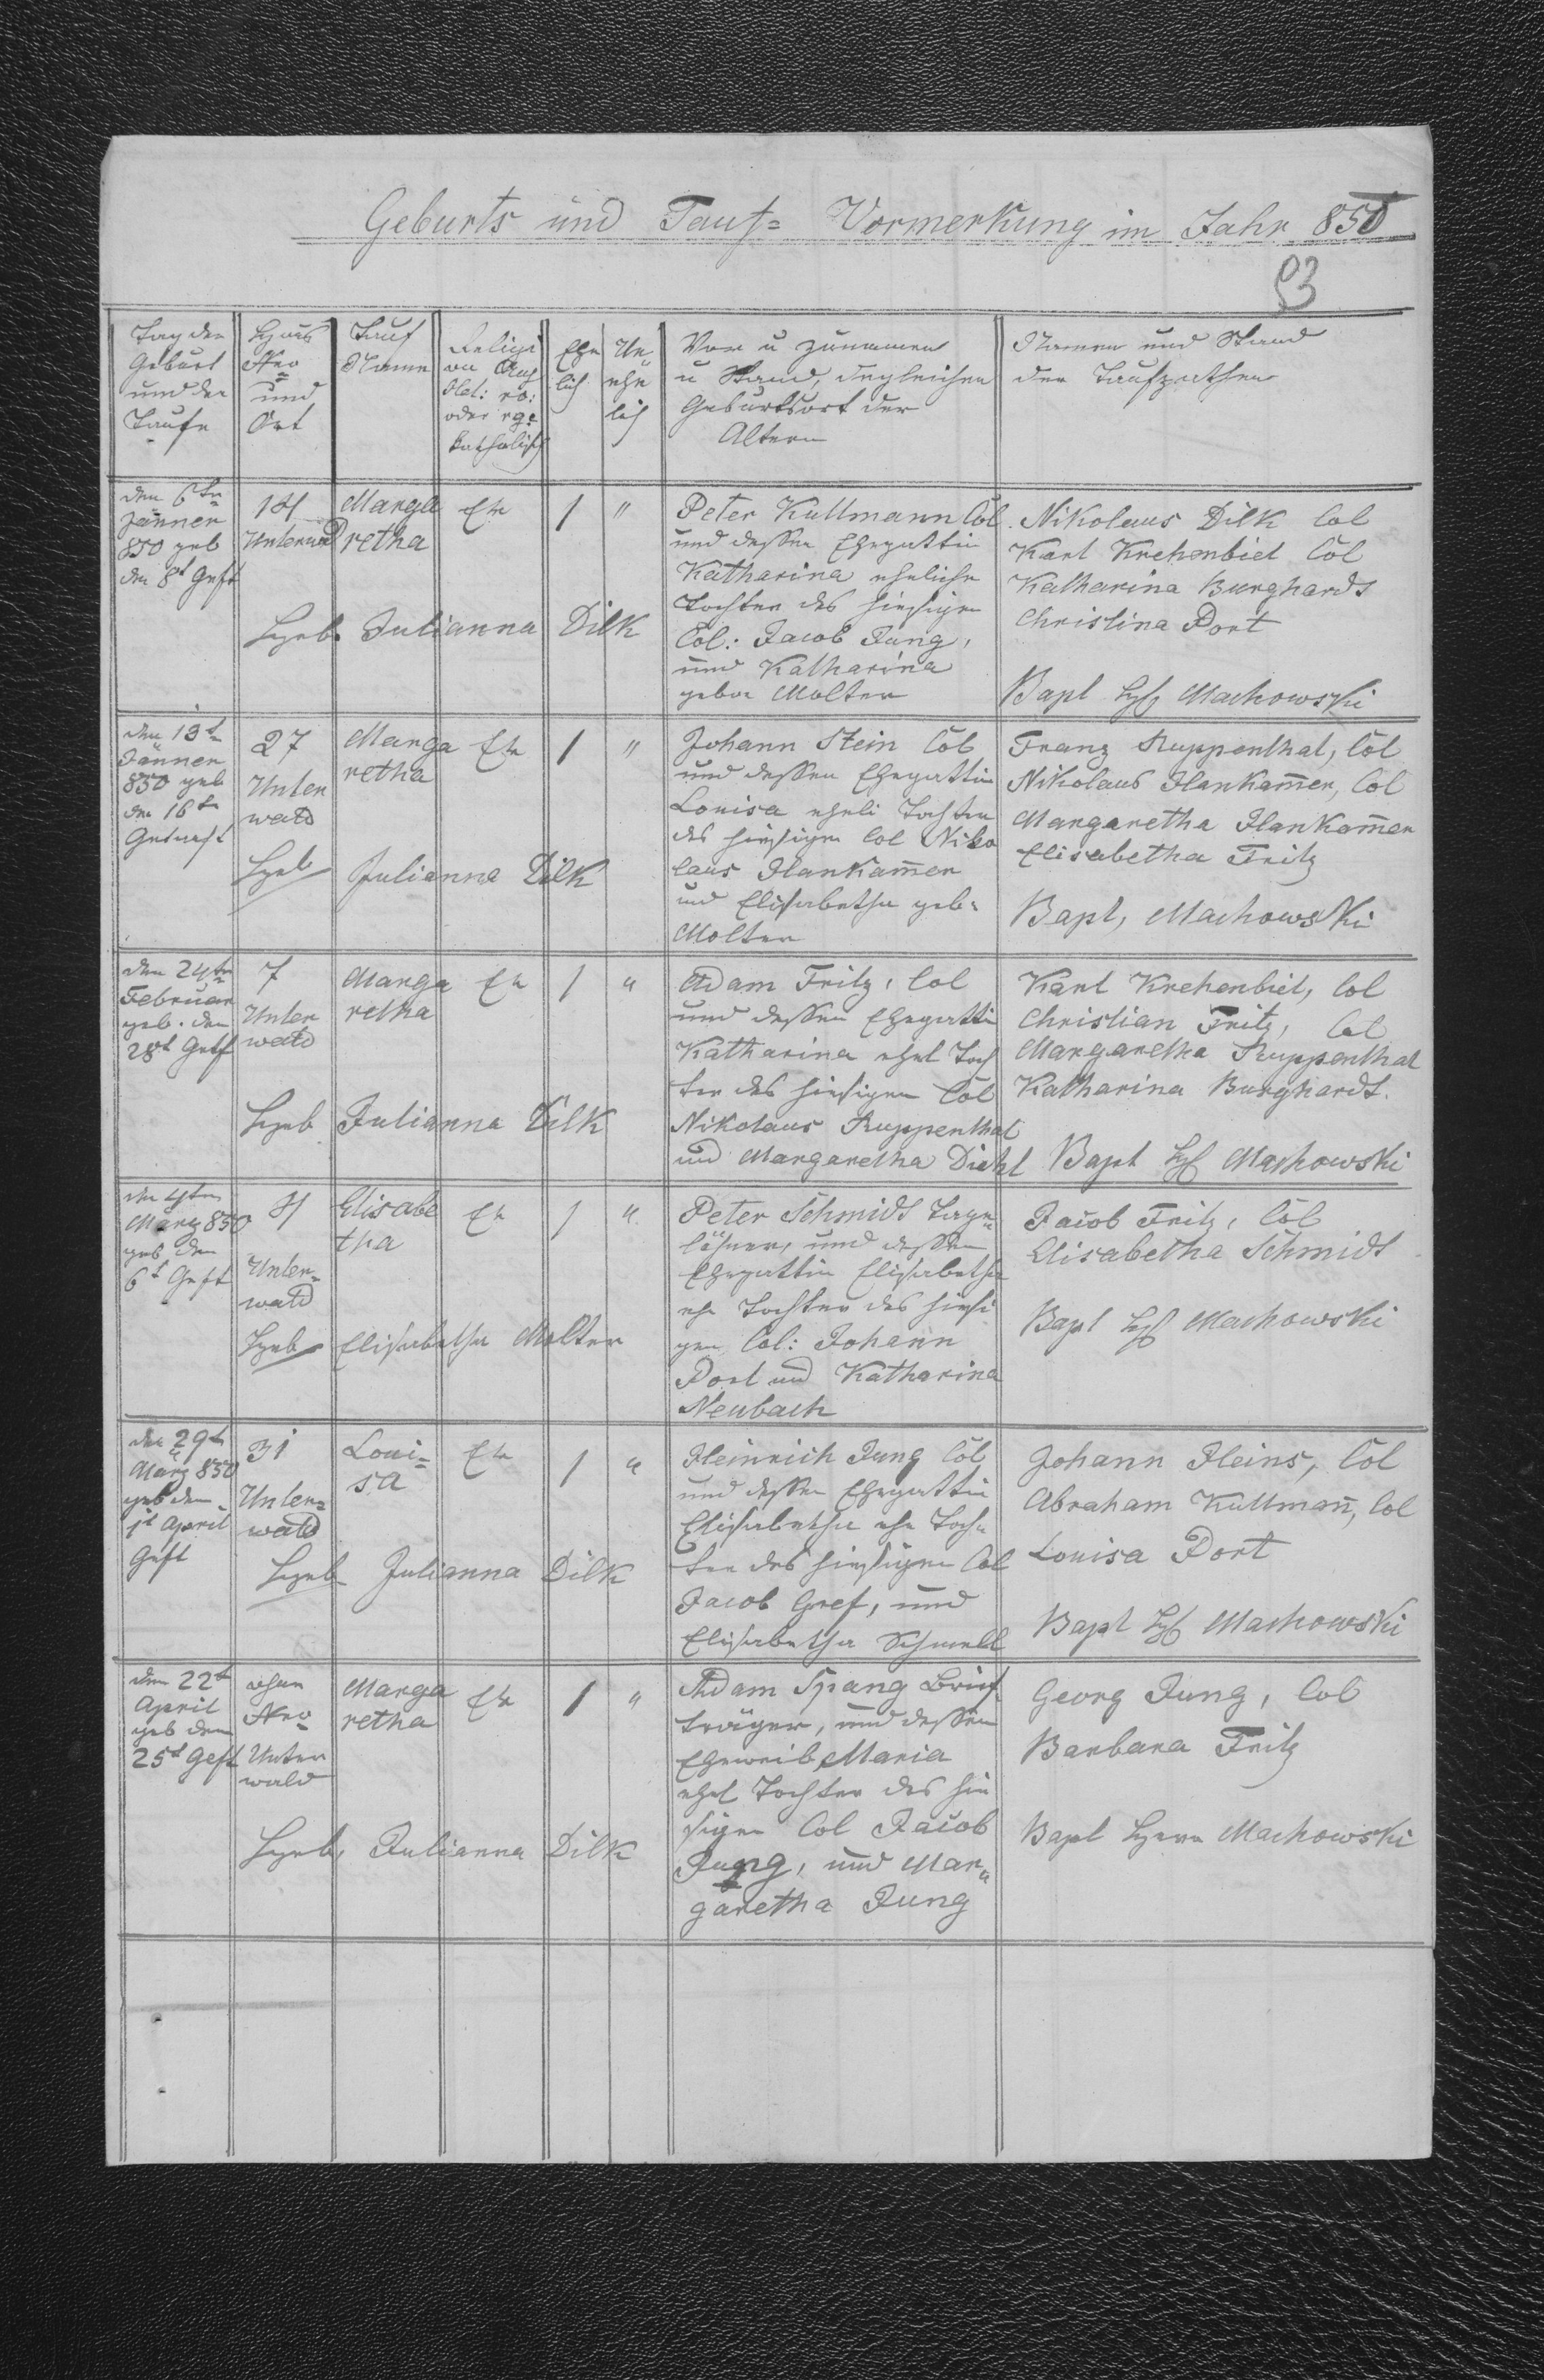 Geburts und Tauf= Vormerkung im Jahr 850
93
Tag der
Geburt
und der
Taufe
Haus
Nro
und
Ort
Tauf
Name
Religi
on Aug
Hel: ro:
oder rge
katholisch
Ehe
lich
Un
ehe
lich
Vor u zunamen
u Stand, degleichen
Geburtsort der
Altern
Namen und Stand
der Taufpathen
den 6tn
Jänner
850 geb
den 8t Getft
Unterwld
Marga
retha
1 "
Peter Kullmann Col.
und dessen Ehegattin
Katharina eheliche
Tochter des hiesigen
Col: Jacob Jung,
und Katharina
gebor Molter
Nikolaus Dilk Col
Karl Krehenbiel Col
Katharina Burghardt
Christina Port
Hyeb. Julianna Dilk
Bapt Machowski
den 13tn
Jänner
850 geb
den 16tn
Getauft
27
Unter
wald
Marga
retha
1 "
Johann Stein Col
und dessen Ehegattin
Louisa eheli Tochter
des hiesigen Col Niko
laus Hankam̄er
und Elisabetha geb:
Molter
Franz Ruppenthal, Col
Nikolaus Hankam̄er, Col
Margaretha Hankam̄er
Elisabetha Fritz
Hyeb Julianna Dilk
Bapt, Machowski
den 24tn
Februar
geb. den
28t Getf
7
Unter
wald
Marga
retha
1 "
Adam Fritz, Col
und dessen Ehegatti
Katharina ehel Toch
ter des hiesigen Col
Nikolaus Ruppenthal
und Margaretha Diehl
Karl Krehenbiel, Col
Christian Fritz, Col
Margaretha Ruppenthal
Katharina Burghardt.
Hyeb Julianna Dilk
Bapt Machowski
den 4tn
März 850
geb den
6t Getft
Unter=
wald
Elisabe
tha
1 "
Peter Schmidt Tage=
löhner, und dessen
Ehegattin Elisabetha
ehe Tochter des hiesi
gen Col: Johann
Port und Katharina
Neubach
Jacob Fritz, Col
Elisabetha Schmidt
Hyeb Elisabetha Molter
Bapt Machowski
den 29t
März 850
geb den
1t April
Getft
31
Unter=
wald
Loui=
sa
1 "
Heinrich Jung Col
und dessen Ehegattin
Elisabetha ehe Toch=
ter des hiesigen Col
Jacob Gref, und
Elisabetha Schmell
Johann Heins, Col
Abraham Kullman̄, Col
Louisa Port
Hyeb Julianna Dilk
Bapt Machowski
den 22t
April
geb den
25t Getft
ohne
Nro
Unter
wald
Marga
retha
1 "
Adam Spang Brief
träger, und dessen
Eheweib Maria
ehel Tochter des hie
sigen Col Jacob
Jung, und Mar=
garetha Jung
Georg Jung, Col
Barbara Fritz
Hyeb, Julianna Dilk
Bapt Herr Machowski